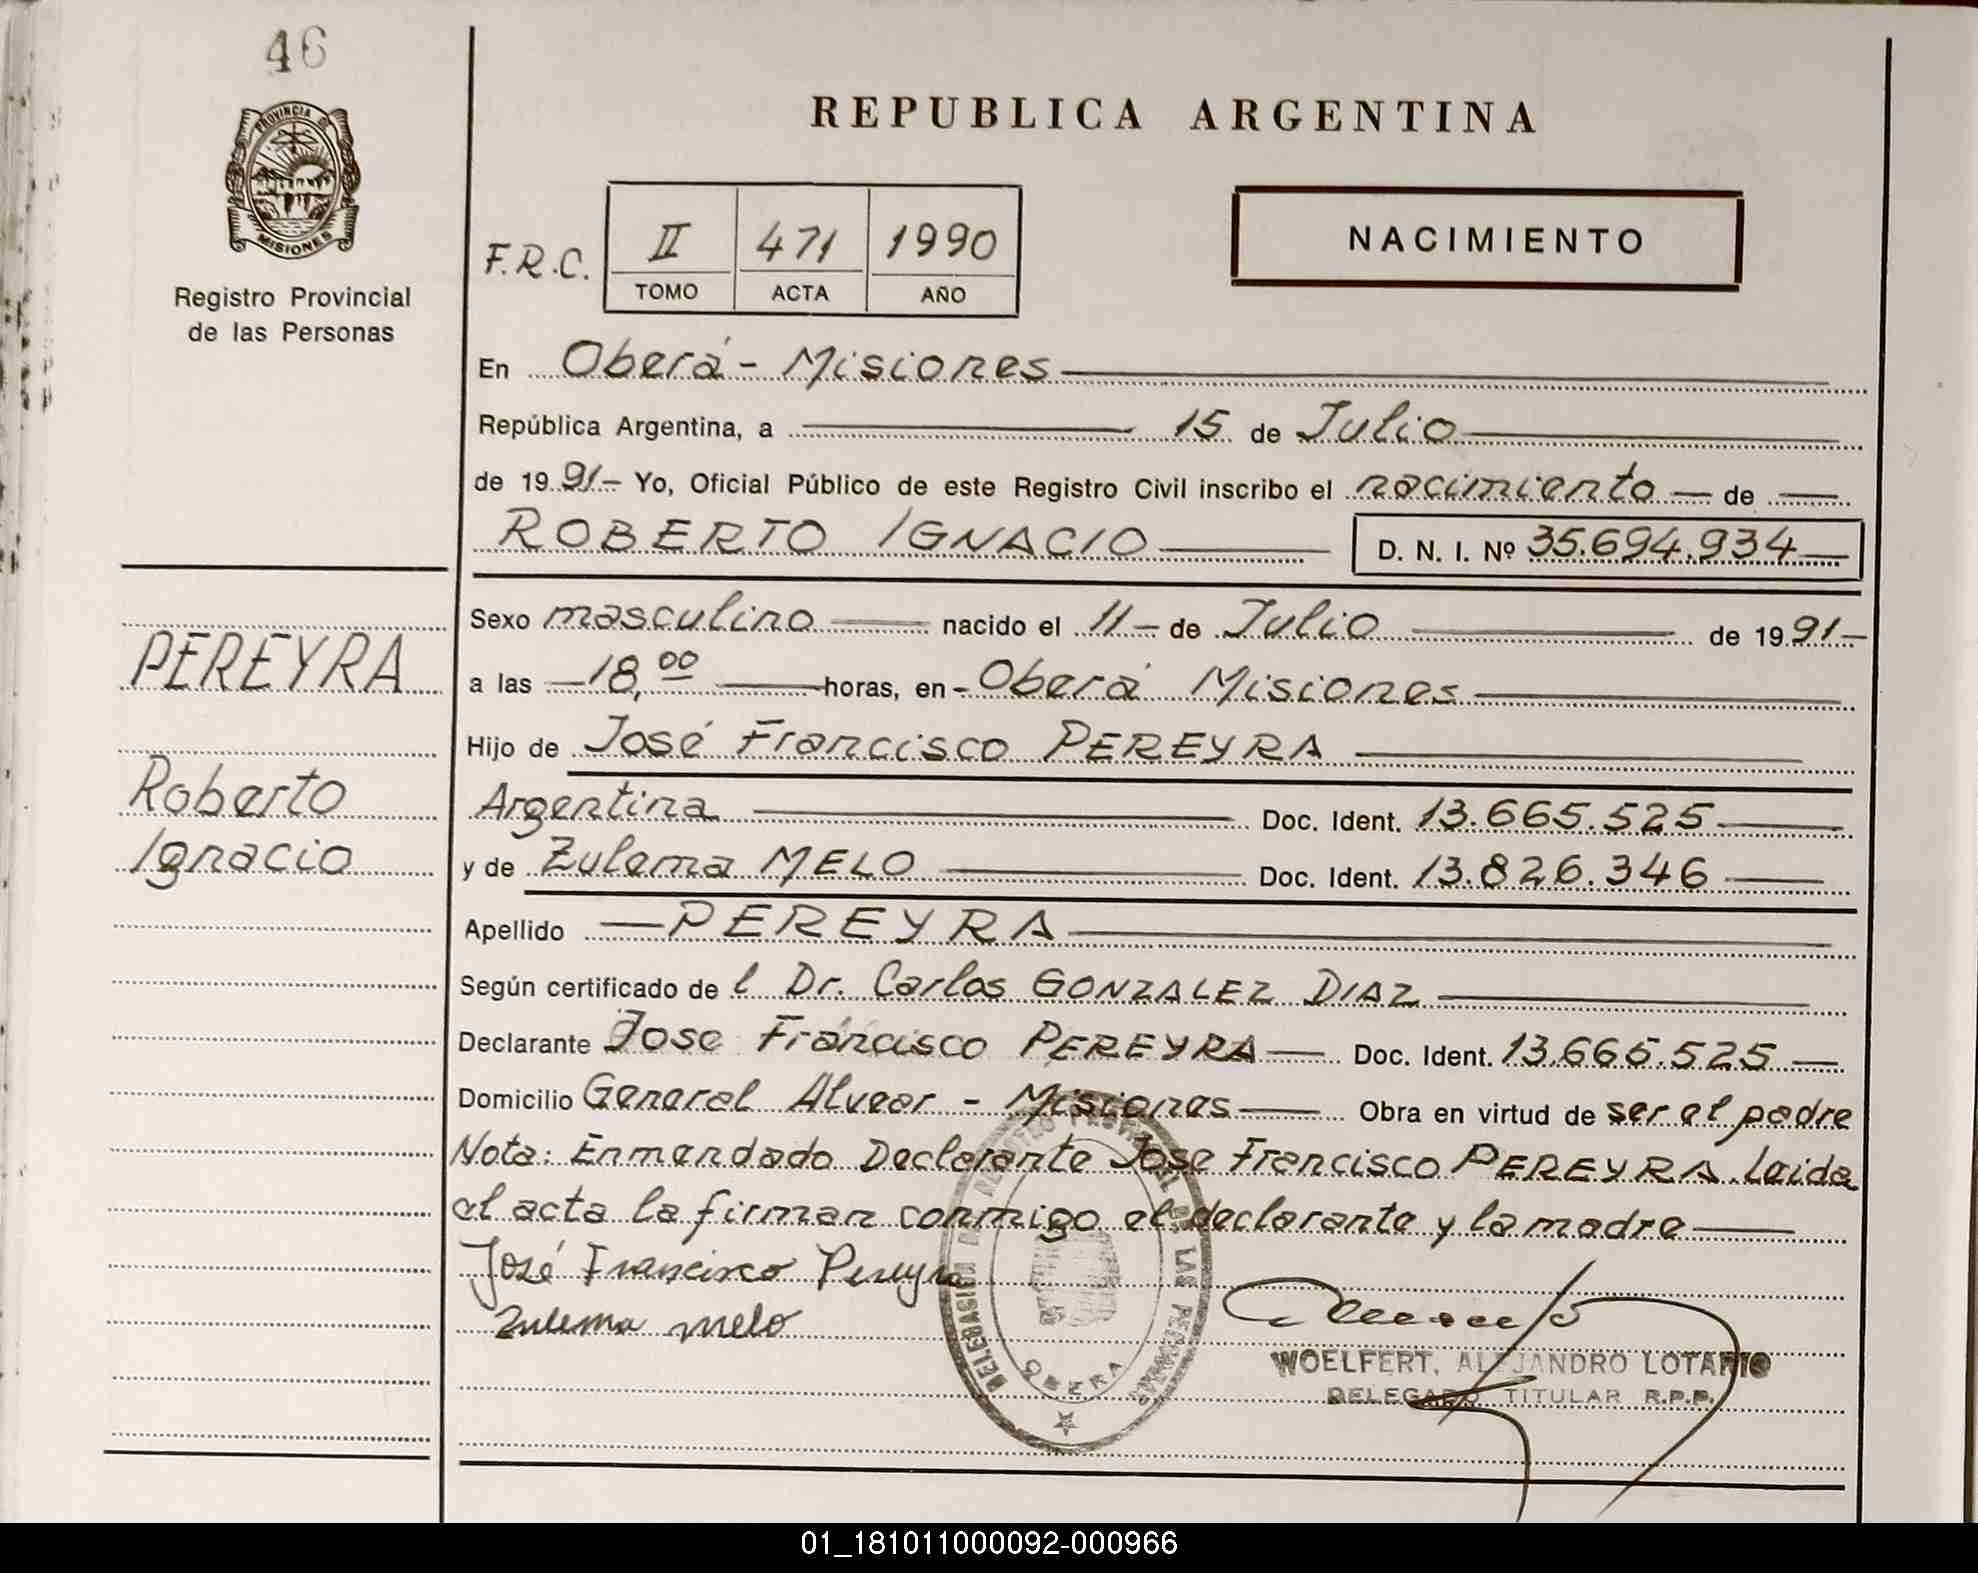 46
PROVINCIA D
MISIONES
Registro Provincial
de las Personas
REPUBLICA ARGENTINA
F.R.C.
II 471 1990
TOMO ACTA AÑO
NACIMIENTO
En Oberá - Misiones
República Argentina, a 15 de Julio
de 19 91- Yo, Oficial Público de este Registro Civil inscribo el nacimiento de
ROBERTO IGNACIO D. N. I. Nº 35.694.934
Sexo masculino nacido el 11 de Julio de 19 91-
a las 18,00 horas, en Oberá Misiones
Hijo de José Francisco PEREYRA
Argentina Doc. Ident. 13.665.525
y de Zulema MELO Doc. Ident. 13.826.346
Apellido PEREYRA
Según certificado de l Dr. Carlos GONZALEZ DIAZ
Declarante Jose Francisco PEREYRA Doc. Ident. 13.665.525
Domicilio General Alvear - Misiones Obra en virtud de ser el padre
Nota: Enmendado Declarante Jose Francisco PEREYRA. Leida
el acta la firman conmigo el declarante y la madre
José Francisco Pereyra
Zulema melo
PEREYRA
Roberto
Ignacio
DELEGACION DEL REGISTRO PROVINCIAL DE LAS PERSONAS
OBERA
WOELFERT, ALEJANDRO LOTARIO
DELEGADO TITULAR R.P.P.
01_181011000092-000966